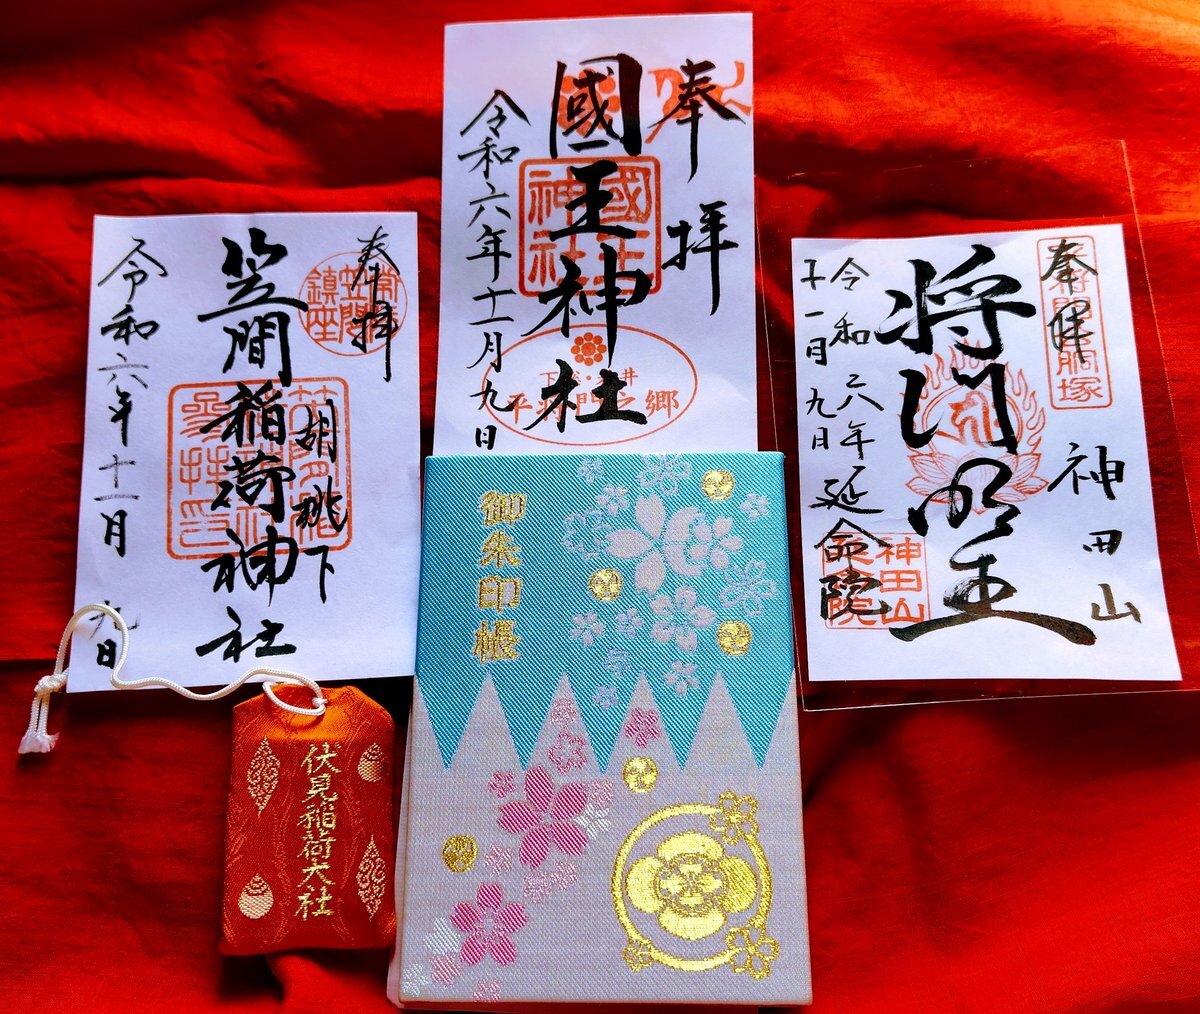 奉拝
胡桃下
笠間稲荷神社
令和六年十一月九日
奉拝
國王神社
令和六年十一月九日
國王神社
平将門之郷
奉拝
神田山
将門明王
令和六年
十一月九日
延命院
神田山
延命院
御朱印帳
伏見稲荷大社